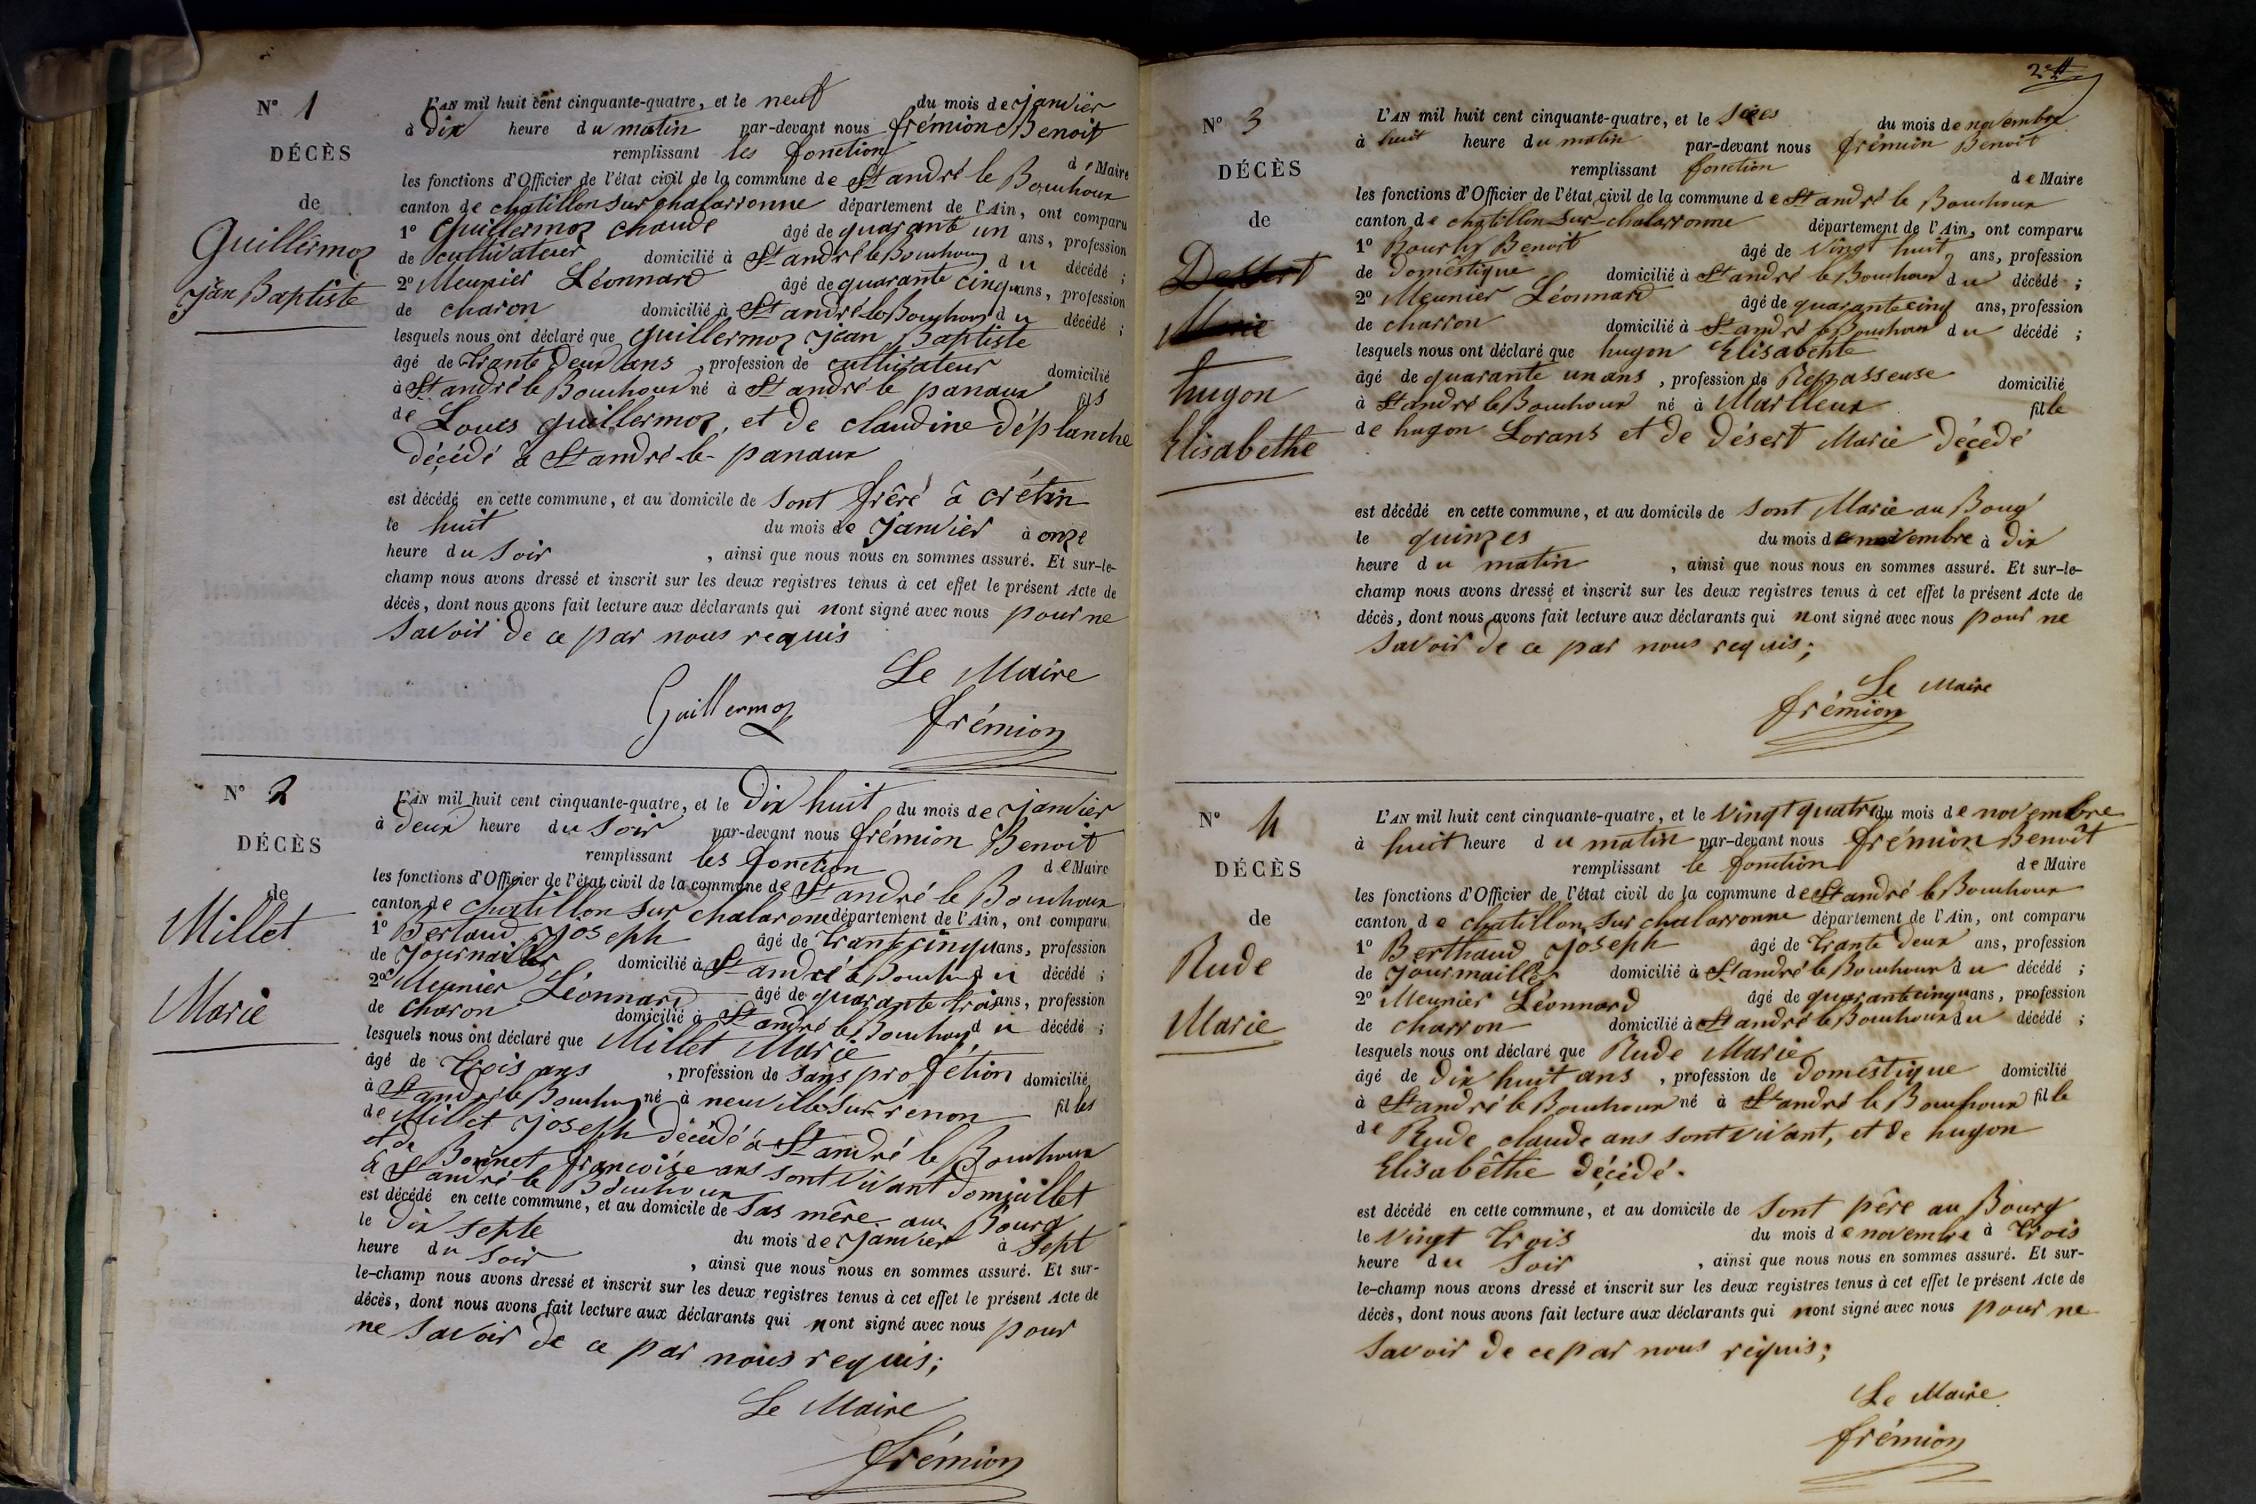 N° 1
DÉCÈS
de
Guillermoz
Jean Baptiste
L'AN mil huit cent cinquante-quatre, et le neuf du mois de janvier
à dix heure du matin par-devant nous frémion Benoit
remplissant les fonction de Maire
les fonctions d'Officier de l'état civil de la commune de St andré le Bouchoux
canton de chatillon sur chalarronne département de l'Ain, ont comparu
1° Guillermoz claude âgé de quarante un ans, profession
de cultivateur domicilié à St andré le Bouchoux du décédé ;
2° Meunier Léonnard âgé de quarante cinq ans, profession
de charon domicilié à St andré le Bouchoux du décédé ;
lesquels nous ont déclaré que guillermoz jean Baptiste
âgé de trante deux ans , profession de cultivateur domicilié
à St andré le Bouchoux né à St andré le panoux fils
de Loues guillermoz, et de claudine déplanche
décédé à St andré-le-panoux
est décédé en cette commune, et au domicile de sont frêré à crétin
le huit du mois de janvier à onze
heure du soir , ainsi que nous nous en sommes assuré. Et sur-le-
champ nous avons dressé et inscrit sur les deux registres tenus à cet effet le présent Acte de
décès, dont nous avons fait lecture aux déclarants qui nont signé avec nous pour ne
savoir de ce par nous requis
Le Maire
Guillermoz frémion
N° 2
DÉCÈS
de
Millet
Marie
L'AN mil huit cent cinquante-quatre, et le dix huit du mois de janvier
à deux heure du soir par-devant nous frémion Benoit
remplissant les fonction de Maire
les fonctions d'Officier de l'état civil de la commune de St andré le Bouchoux
canton de chatillon sur chalarone département de l'Ain, ont comparu
1° Bertaud Joseph âgé de trante cinqu ans, profession
de Journailler domicilié à St andré le Bouchoux du décédé ;
2° Meunier Léonnard âgé de quarante trois ans, profession
de charon domicilié à St andré le Bouchoux du décédé ;
lesquels nous ont déclaré que Millet Marie
âgé de trois ans , profession de sans profétion domicilié
à St andré le Bouchoux né à neuville sur renon filles
de Millet Joseph décédé à St andré le Bouchoux
et de Bonnet françoise ans sont vivant domicillet
à St andré le Bouchoux
est décédé en cette commune, et au domicile de sas mêre aux Bourg
le dix septe du mois de janvier à sept
heure du soir , ainsi que nous nous en sommes assuré. Et sur-
le-champ nous avons dressé et inscrit sur les deux registres tenus à cet effet le présent Acte de
décès, dont nous avons fait lecture aux déclarants qui nont signé avec nous pour
ne savoir de ce par nous requis;
Le Maire
frémion
2e
N° 3
DÉCÈS
de
Dessert
Marie
hugon
Elisabethe
L'AN mil huit cent cinquante-quatre, et le sèzes du mois de novembre
à huit heure du matin par-devant nous frémion Benoit
remplissant fonction de Maire
les fonctions d'Officier de l'état civil de la commune de St andré le Bouchoux
canton de chatillon sur chalarronne département de l'Ain, ont comparu
1° Bourly Benoit âgé de vingt huit ans, profession
de domêstique domicilié à St andré le Bouchoux du décédé ;
2° Meunier Léonnard âgé de quarante cinq ans, profession
de charron domicilié à St andré le Bouchoux du décédé ;
lesquels nous ont déclaré que hugon Elisabethe
âgé de quarante un ans , profession de Repasseuse domicilié
à St andré le Bouchoux né à Marlieux fille
de hugon Lorans et de Désert Marie décédé
est décédé en cette commune, et au domicile de sont Marie au Boug
le quinzes du mois de novembre à dix
heure du matin , ainsi que nous nous en sommes assuré. Et sur-le-
champ nous avons dressé et inscrit sur les deux registres tenus à cet effet le présent Acte de
décès, dont nous avons fait lecture aux déclarants qui nont signé avec nous pour ne
savoir de ce par nous requis;
Le Maire
frémion
N° 4
DÉCÈS
de
Rude
Marie
L'AN mil huit cent cinquante-quatre, et le vingt quatre du mois de novembre
à huit heure du matin par-devant nous frémion Benoit
remplissant le fonction de Maire
les fonctions d'Officier de l'état civil de la commune de St andré le Bouchoux
canton de chatillon sur chalarronne département de l'Ain, ont comparu
1° Berthaud Joseph âgé de trante deux ans, profession
de journailler domicilié à St andré le Bouchoux du décédé ;
2° Meunier Léonnard âgé de quarante cinqu ans, profession
de charron domicilié à St andré le Bouchoux du décédé ;
lesquels nous ont déclaré que Rude Marie
âgé de dix huit ans , profession de domêstique domicilié
à St andré le Bouchoux né à St andré le Bouchoux fille
de Rude claude ans sont vivant, et de hugon
Elisabêthe décédé.
est décédé en cette commune, et au domicile de sont pêre au Bourg
le vingt trois du mois de novembre à trois
heure du soir , ainsi que nous nous en sommes assuré. Et sur-
le-champ nous avons dressé et inscrit sur les deux registres tenus à cet effet le présent Acte de
décès, dont nous avons fait lecture aux déclarants qui nont signé avec nous pour ne
savoir de ce par nous requis;
Le Maire
frémion